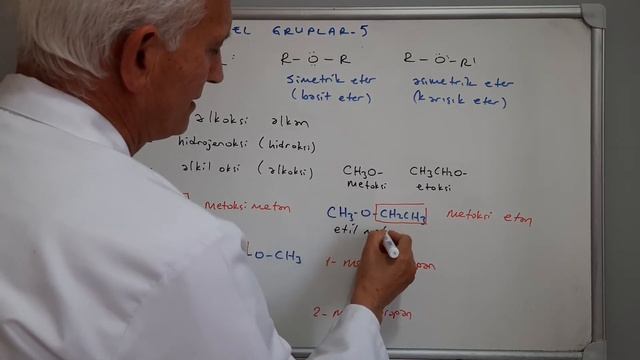 GRUPLAR-5
R-Ö-R R-Ö-R'
simetrik eter asimetrik eter
(basit eter) (karışık eter)
alkoksi alkan
hidrojenoksi (hidroksi)
alkil oksi (alkoksi) CH₃O- CH₃CH₂O-
metoksi etoksi
metoksi metan CH₃-O-CH₂CH₃ metoksi etan
etil
O-CH₃ 1-
2-